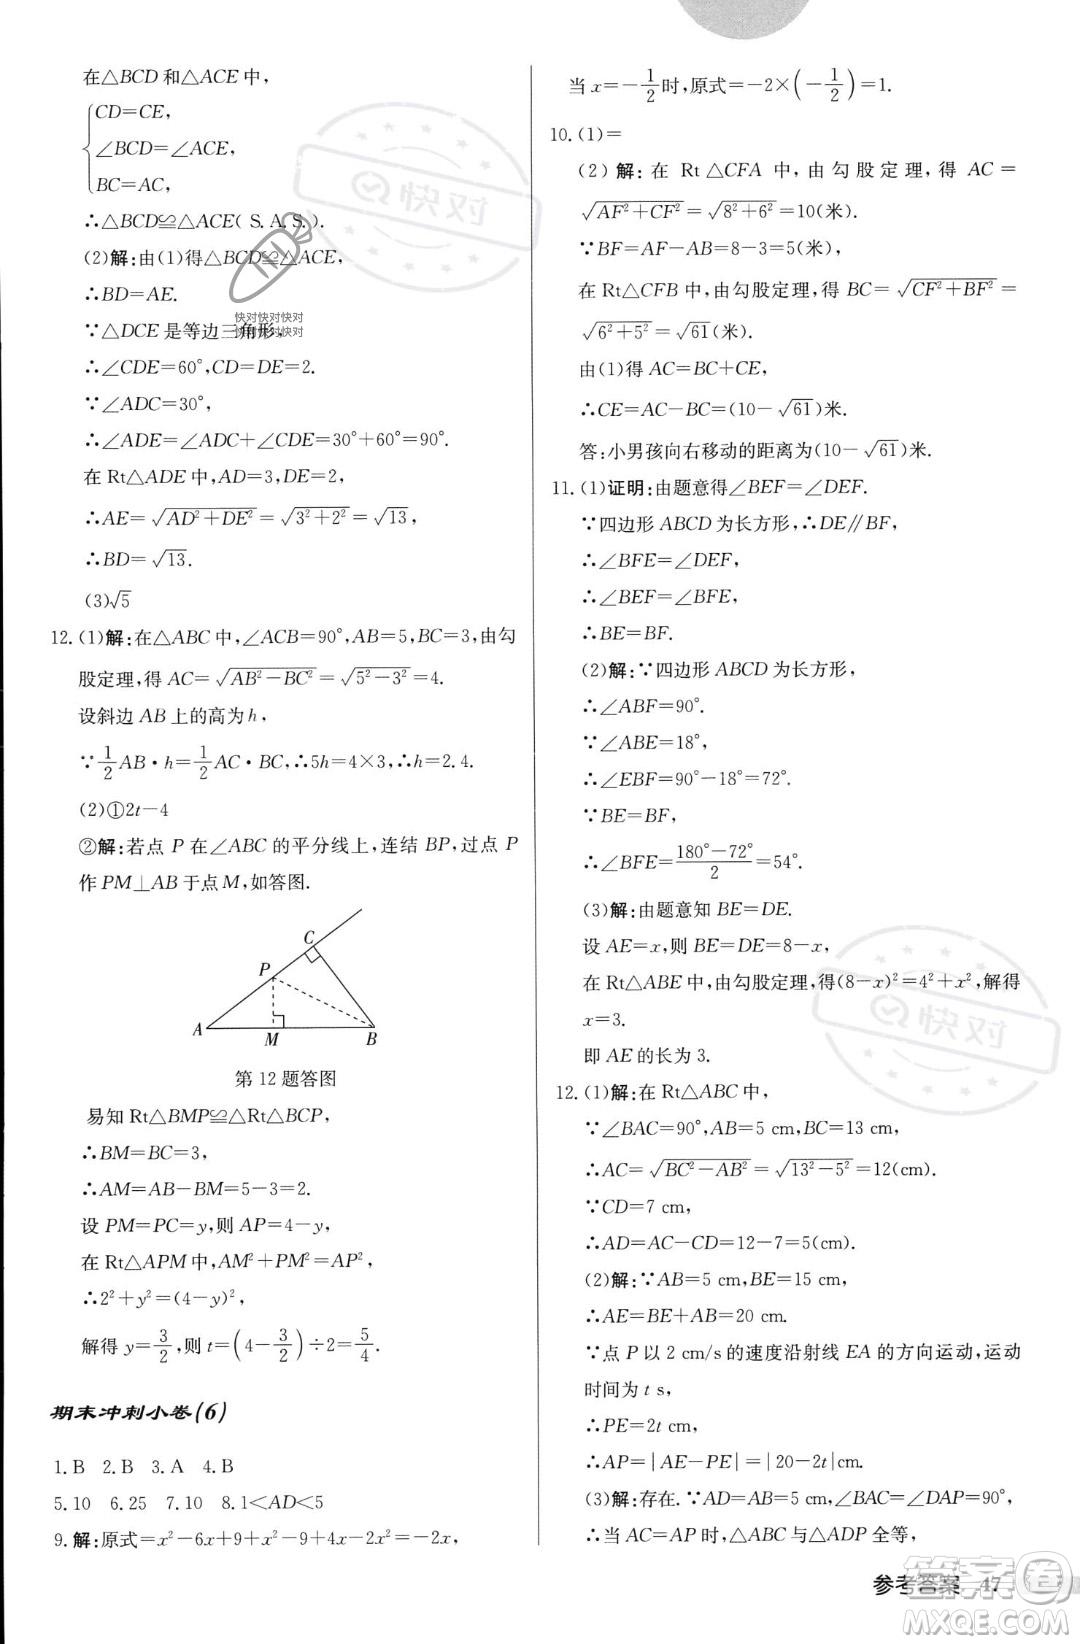 在△BCD 和△ACE 中，
CD=CE，
∠BCD=∠ACE，
BC=AC，
∴△BCD≌△ACE( S.A.S.).
(2)解：由(1)得△BCD≌△ACE，
∴BD=AE.
∵△DCE 是等边三角形，
∴∠CDE=60°，CD=DE=2.
∵∠ADC=30°，
∴∠ADE=∠ADC+∠CDE=30°+60°=90°.
在 Rt△ADE 中，AD=3，DE=2，
∴AE=√(AD²+DE²)=√(3²+2²)=√13，
∴BD=√13.
(3)√5
12. (1)解：在△ABC 中，∠ACB=90°，AB=5，BC=3，由勾
股定理，得 AC=√(AB²-BC²)=√(5²-3²)=4.
设斜边 AB 上的高为 h，
∵1/2 AB·h=1/2 AC·BC，∴5h=4×3，∴h=2.4.
(2)①2t-4
②解：若点 P 在∠ABC 的平分线上，连结 BP，过点 P
作 PM⊥AB 于点 M，如答图.
C
P
A
M
B
第 12 题答图
易知 Rt△BMP≌△Rt△BCP，
∴BM=BC=3，
∴AM=AB-BM=5-3=2.
设 PM=PC=y，则 AP=4-y，
在 Rt△APM 中，AM²+PM²=AP²，
∴2²+y²=(4-y)²，
解得 y=3/2，则 t=(4-3/2)÷2=5/4.
期末冲刺小卷(6)
1. B 2. B 3. A 4. B
5. 10 6. 25 7. 10 8. 1<AD<5
9. 解：原式=x²-6x+9+x²-9+4x-2x²=-2x，
当 x=-1/2时，原式=-2×(-1/2)=1.
10. (1)=
(2) 解：在 Rt△CFA 中，由勾股定理，得 AC=
√(AF²+CF²)=√(8²+6²)=10(米).
∵BF=AF-AB=8-3=5(米)，
在 Rt△CFB 中，由勾股定理，得 BC=√(CF²+BF²)=
√(6²+5²)=√61(米).
由(1)得 AC=BC+CE，
∴CE=AC-BC=(10-√61)米.
答：小男孩向右移动的距离为(10-√61)米.
11. (1)证明：由题意得∠BEF=∠DEF.
∵四边形 ABCD 为长方形，∴DE∥BF，
∴∠BFE=∠DEF，
∴∠BEF=∠BFE，
∴BE=BF.
(2)解：∵四边形 ABCD 为长方形，
∴∠ABF=90°.
∵∠ABE=18°，
∴∠EBF=90°-18°=72°.
∵BE=BF，
∴∠BFE=(180°-72°)/2=54°.
(3)解：由题意知 BE=DE.
设 AE=x，则 BE=DE=8-x，
在 Rt△ABE 中，由勾股定理，得(8-x)²=4²+x²，解得
x=3.
即 AE 的长为 3.
12. (1)解：在 Rt△ABC 中，
∵∠BAC=90°，AB=5 cm，BC=13 cm，
∴AC=√(BC²-AB²)=√(13²-5²)=12(cm).
∵CD=7 cm，
∴AD=AC-CD=12-7=5(cm).
(2)解：∵AB=5 cm，BE=15 cm，
∴AE=BE+AB=20 cm.
∵点 P 以 2 cm/s 的速度沿射线 EA 的方向运动，运动
时间为 t s，
∴PE=2t cm，
∴AP=|AE-PE|=|20-2t|cm.
(3)解：存在.∵AD=AB，∠BAC=∠DAP=90°，
∴当 AC=AP 时，△ABC 与△ADP 全等，
参考答案 47
快对
快对
快对
快对快对快对
快对快对快对
答案圈
MXQE.COM